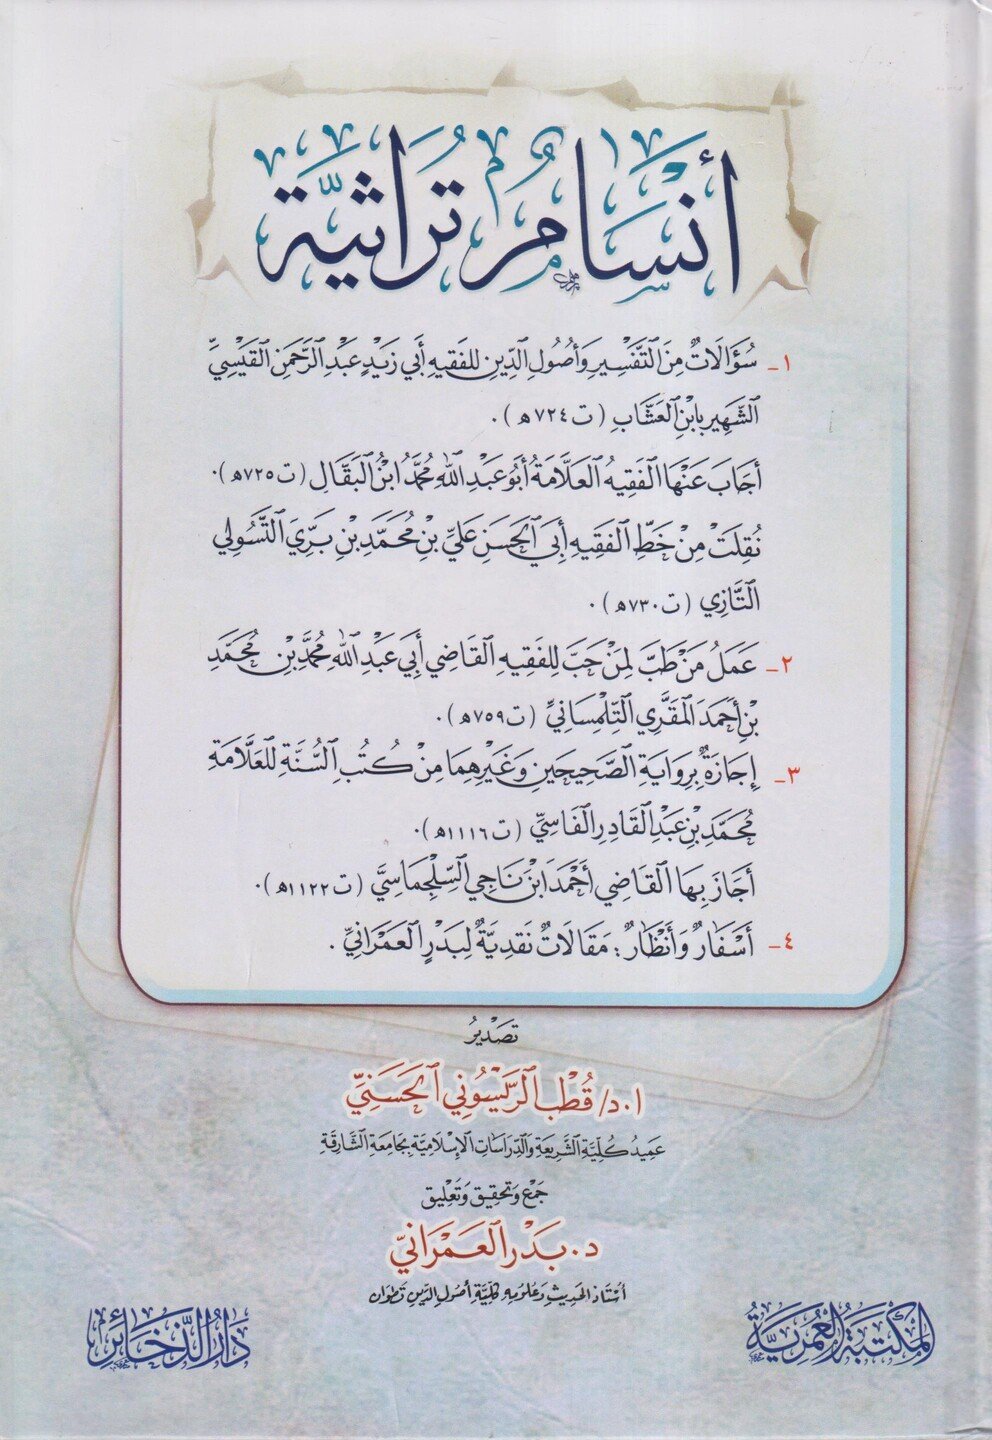 أنسامٌ تُراثيَّة
١- سُؤَالَاتٌ مِنَ التَّفْسِيرِ وَأُصُولِ الدِّينِ لِلفَقِيهِ أَبِي زَيْدٍ عَبْدِ الرَّحْمَنِ القَيْسِيِّ
الشَّهِيرِ بِابْنِ العَشَّابِ (ت٧٢٤ه).
أَجَابَ عَنْهَا الفَقِيهُ العَلَّامَةُ أَبُو عَبْدِ اللهِ مُحَمَّدُ ابْنُ البَقَّالِ (ت٧٢٥ه).
نُقِلَتْ مِنْ خَطِّ الفَقِيهِ أَبِي الحَسَنِ عَلِيِّ بْنِ مُحَمَّدِ بْنِ بَرِّيَ التَّسُولِي
التَّازِي (ت٧٣٠ه).
٢- عَمَلُ مَنْ طَبَّ لِمَنْ حَبَّ لِلفَقِيهِ القَاضِي أَبِي عَبْدِ اللهِ مُحَمَّدِ بْنِ مُحَمَّدِ
بْنِ أَحْمَدَ المَقَّرِي التِّلِمْسَانِيِّ (ت٧٥٩ه).
٣- إِجَازَةٌ بِرِوَايَةِ الصَّحِيحَيْنِ وَغَيْرِهِمَا مِنْ كُتُبِ السُّنَّةِ لِلعَلَّامَةِ
مُحَمَّدِ بْنِ عَبْدِ القَادِرِ الفَاسِيِّ (ت١١١٦ه).
أَجَازَ بِهَا القَاضِي أَحْمَدَ ابْنَ نَاجِي السِّلِجْمَاسِيَّ (ت١١٢٢ه).
٤- أَسْفَارٌ وَأَنْظَارٌ: مَقَالَاتٌ نَقْدِيَّةٌ لِبَدْرٍ العَمْرَانِيِّ.
تَصْدِيرُ
ا.د/ قُطْب الرَّيْسُونِي الحَسَنِيِّ
عَمِيدُ كُلِّيَّةِ الشَّرِيعَةِ وَالدِّرَاسَاتِ الإِسْلَامِيَّةِ بِجَامِعَةِ الشَّارِقَةِ
جَمْع وَتَحْقِيق وَتَعْلِيق
د. بَدْر العَمْرَانِيِّ
أُسْتَاذ الحَدِيثِ وَعُلُومِهِ كُلِّيَّة أُصُولِ الدِّينِ تِطْوَان
المَكتَبَةُ العُمَرِيَّةُ
دَارُ الذَّخَائِرِ